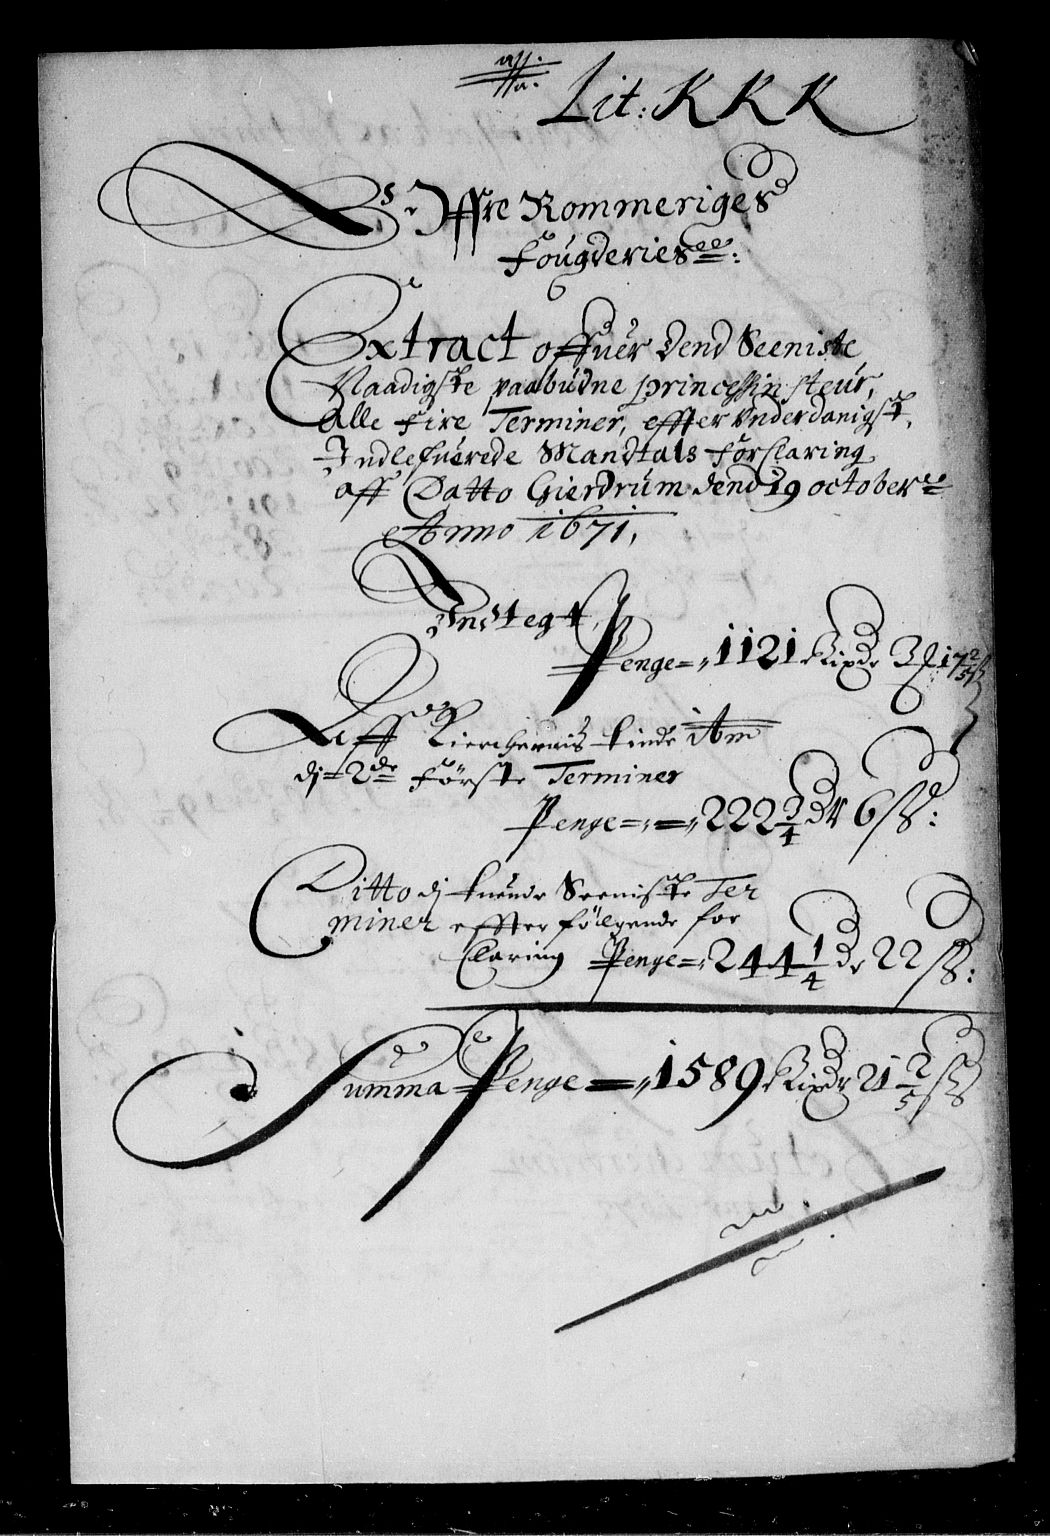 Lit: K K K
Öffre Rommeriges
Fougderies:
Extract offuer dend Seeniste
Naadigste paabudne princessin steur,
Alle Fire Terminer, effter Underdanigst,
Indlefuerede Mandtals forklaring
aff Datto Gierdrum dend 19 october
Anno 1671,
Indtegt,
Penge = 1121 Rixdr 3 ß 17 2/5 ß
Aff
di 2de förste Terminer
Penge = = 222 3/4 dr 6 ß:
Ditto di tuende Seeniste Ter
miner effter fölgende for
Claring Penge = 244 1/4 dr 22 ß:
Summa Penge = 1589 Rixdr 21 2/5 ß